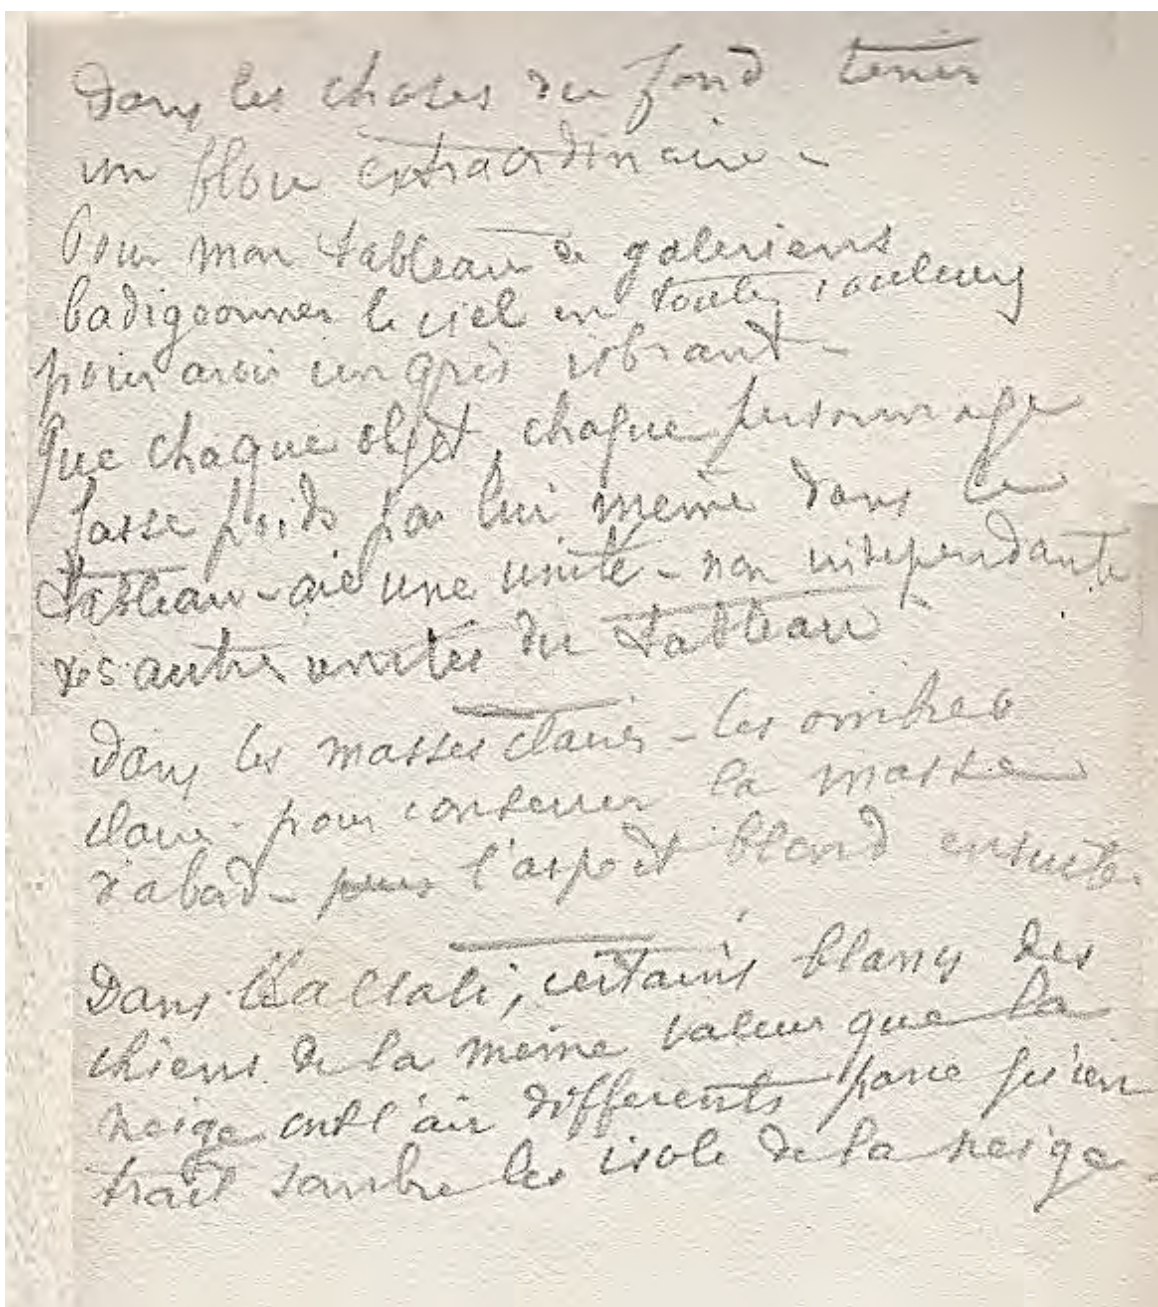 Dans les choses du fond tenir
un flou extraordinaire -
Pour mon tableau de galeriens
badigeonner le ciel en toutes couleurs
pour avoir un gris vibrant -
Que chaque objet, chaque personnage
fasse poids par lui même dans le
tableau - aie une unité - non independante
des autres unités du tableau
Dans les masses claires - les ombres
claires - pour conserver la masse
d'abord - puis l'aspect blond ensuite.
Dans certains blancs des
chiens de la même valeur que la
neige ont l'air differents parce qu'un
trait sombre les isole de la neige -